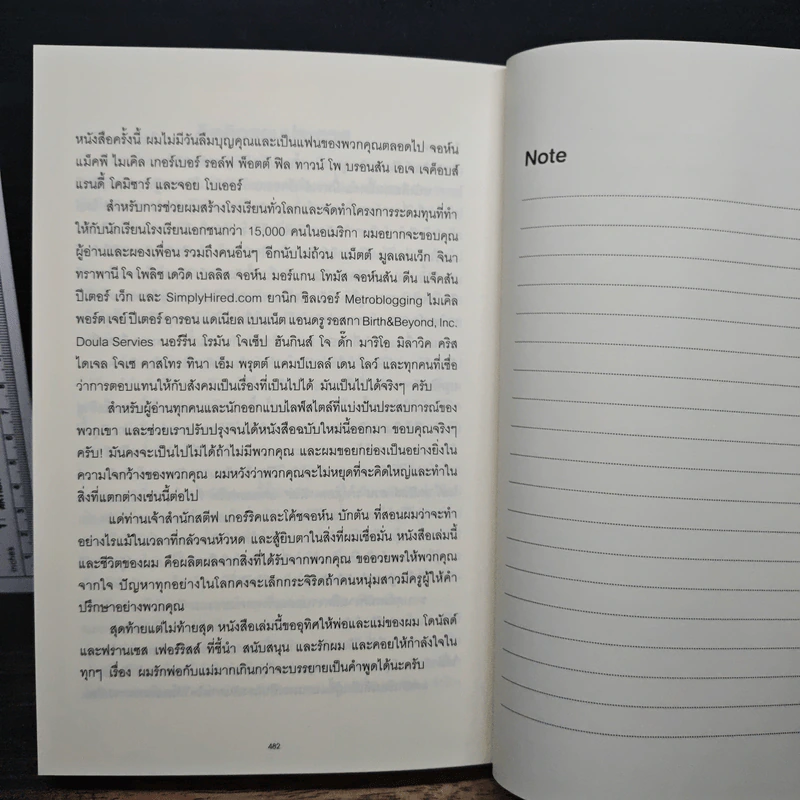 หนังสือครั้งนี้ ผมไม่มีวันลืมบุญคุณและเป็นแฟนของพวกคุณตลอดไป จอห์น
แม็คพี ไมเคิล เกอร์เบอร์ รอล์ฟ พ็อตต์ ฟิล ทาวน์ โพ บรอนสัน เอเจ เจค็อบส์
แรนดี้ โคมิซาร์ และจอย โบเออร์
สำหรับการช่วยผมสร้างโรงเรียนทั่วโลกและจัดทำโครงการระดมทุนที่ทำ
ให้กับนักเรียนโรงเรียนเอกชนกว่า 15,000 คนในอเมริกา ผมอยากจะขอบคุณ
ผู้อ่านและผองเพื่อน รวมถึงคนอื่นๆ อีกนับไม่ถ้วน แม็ตต์ มูลเลนเว็ก จินา
ทราพานี โจ โพลิช เดวิด เบลลิส จอห์น มอร์แกน โทมัส จอห์นสัน ดีน แจ็คสัน
ปีเตอร์ เว็ก และ SimplyHired.com ยานิก ซิลเวอร์ Metroblogging ไมเคิล
พอร์ต เจย์ ปีเตอร์ อารอน แดเนียล เบนเน็ต แอนดรู รอสกา Birth&Beyond, Inc.
Doula Servies นอร์รีน โรมัน โจเซ็ป ฮันกินส์ โจ ดั๊ก มาริโอ มิลาวิค คริส
ไดเจล โจเซ คาสโทร ทินา เอ็ม พรุตต์ แคมป์เบลล์ เดน โลว์ และทุกคนที่เชื่อ
ว่าการตอบแทนให้กับสังคมเป็นเรื่องที่เป็นไปได้ มันเป็นไปได้จริงๆ ครับ
สำหรับผู้อ่านทุกคนและนักออกแบบไลฟ์สไตล์ที่แบ่งปันประสบการณ์ของ
พวกเขา และช่วยเราปรับปรุงจนได้หนังสือฉบับใหม่นี้ออกมา ขอบคุณจริงๆ
ครับ! มันคงจะเป็นไปไม่ได้ถ้าไม่มีพวกคุณ และผมขอยกย่องเป็นอย่างยิ่งใน
ความใจกว้างของพวกคุณ ผมหวังว่าพวกคุณจะไม่หยุดที่จะคิดใหญ่และทำใน
สิ่งที่แตกต่างเช่นนี้ต่อไป
แด่ท่านเจ้าสำนักสตีฟ เกอร์ริคและโค้ชจอห์น บักตัน ที่สอนผมว่าจะทำ
อย่างไรแม้ในเวลาที่กลัวจนหัวหด และสู้ยิบตาในสิ่งที่ผมเชื่อมั่น หนังสือเล่มนี้
และชีวิตของผม คือผลิตผลจากสิ่งที่ได้รับจากพวกคุณ ขออวยพรให้พวกคุณ
จากใจ ปัญหาทุกอย่างในโลกคงจะเล็กกระจิริดถ้าคนหนุ่มสาวมีครูผู้ให้คำ
ปรึกษาอย่างพวกคุณ
สุดท้ายแต่ไม่ท้ายสุด หนังสือเล่มนี้ขออุทิศให้พ่อและแม่ของผม โดนัลด์
และฟรานเซส เฟอร์ริสส์ ที่ชี้นำ สนับสนุน และรักผม และคอยให้กำลังใจใน
ทุกๆ เรื่อง ผมรักพ่อกับแม่มากเกินกว่าจะบรรยายเป็นคำพูดได้นะครับ
482
Note